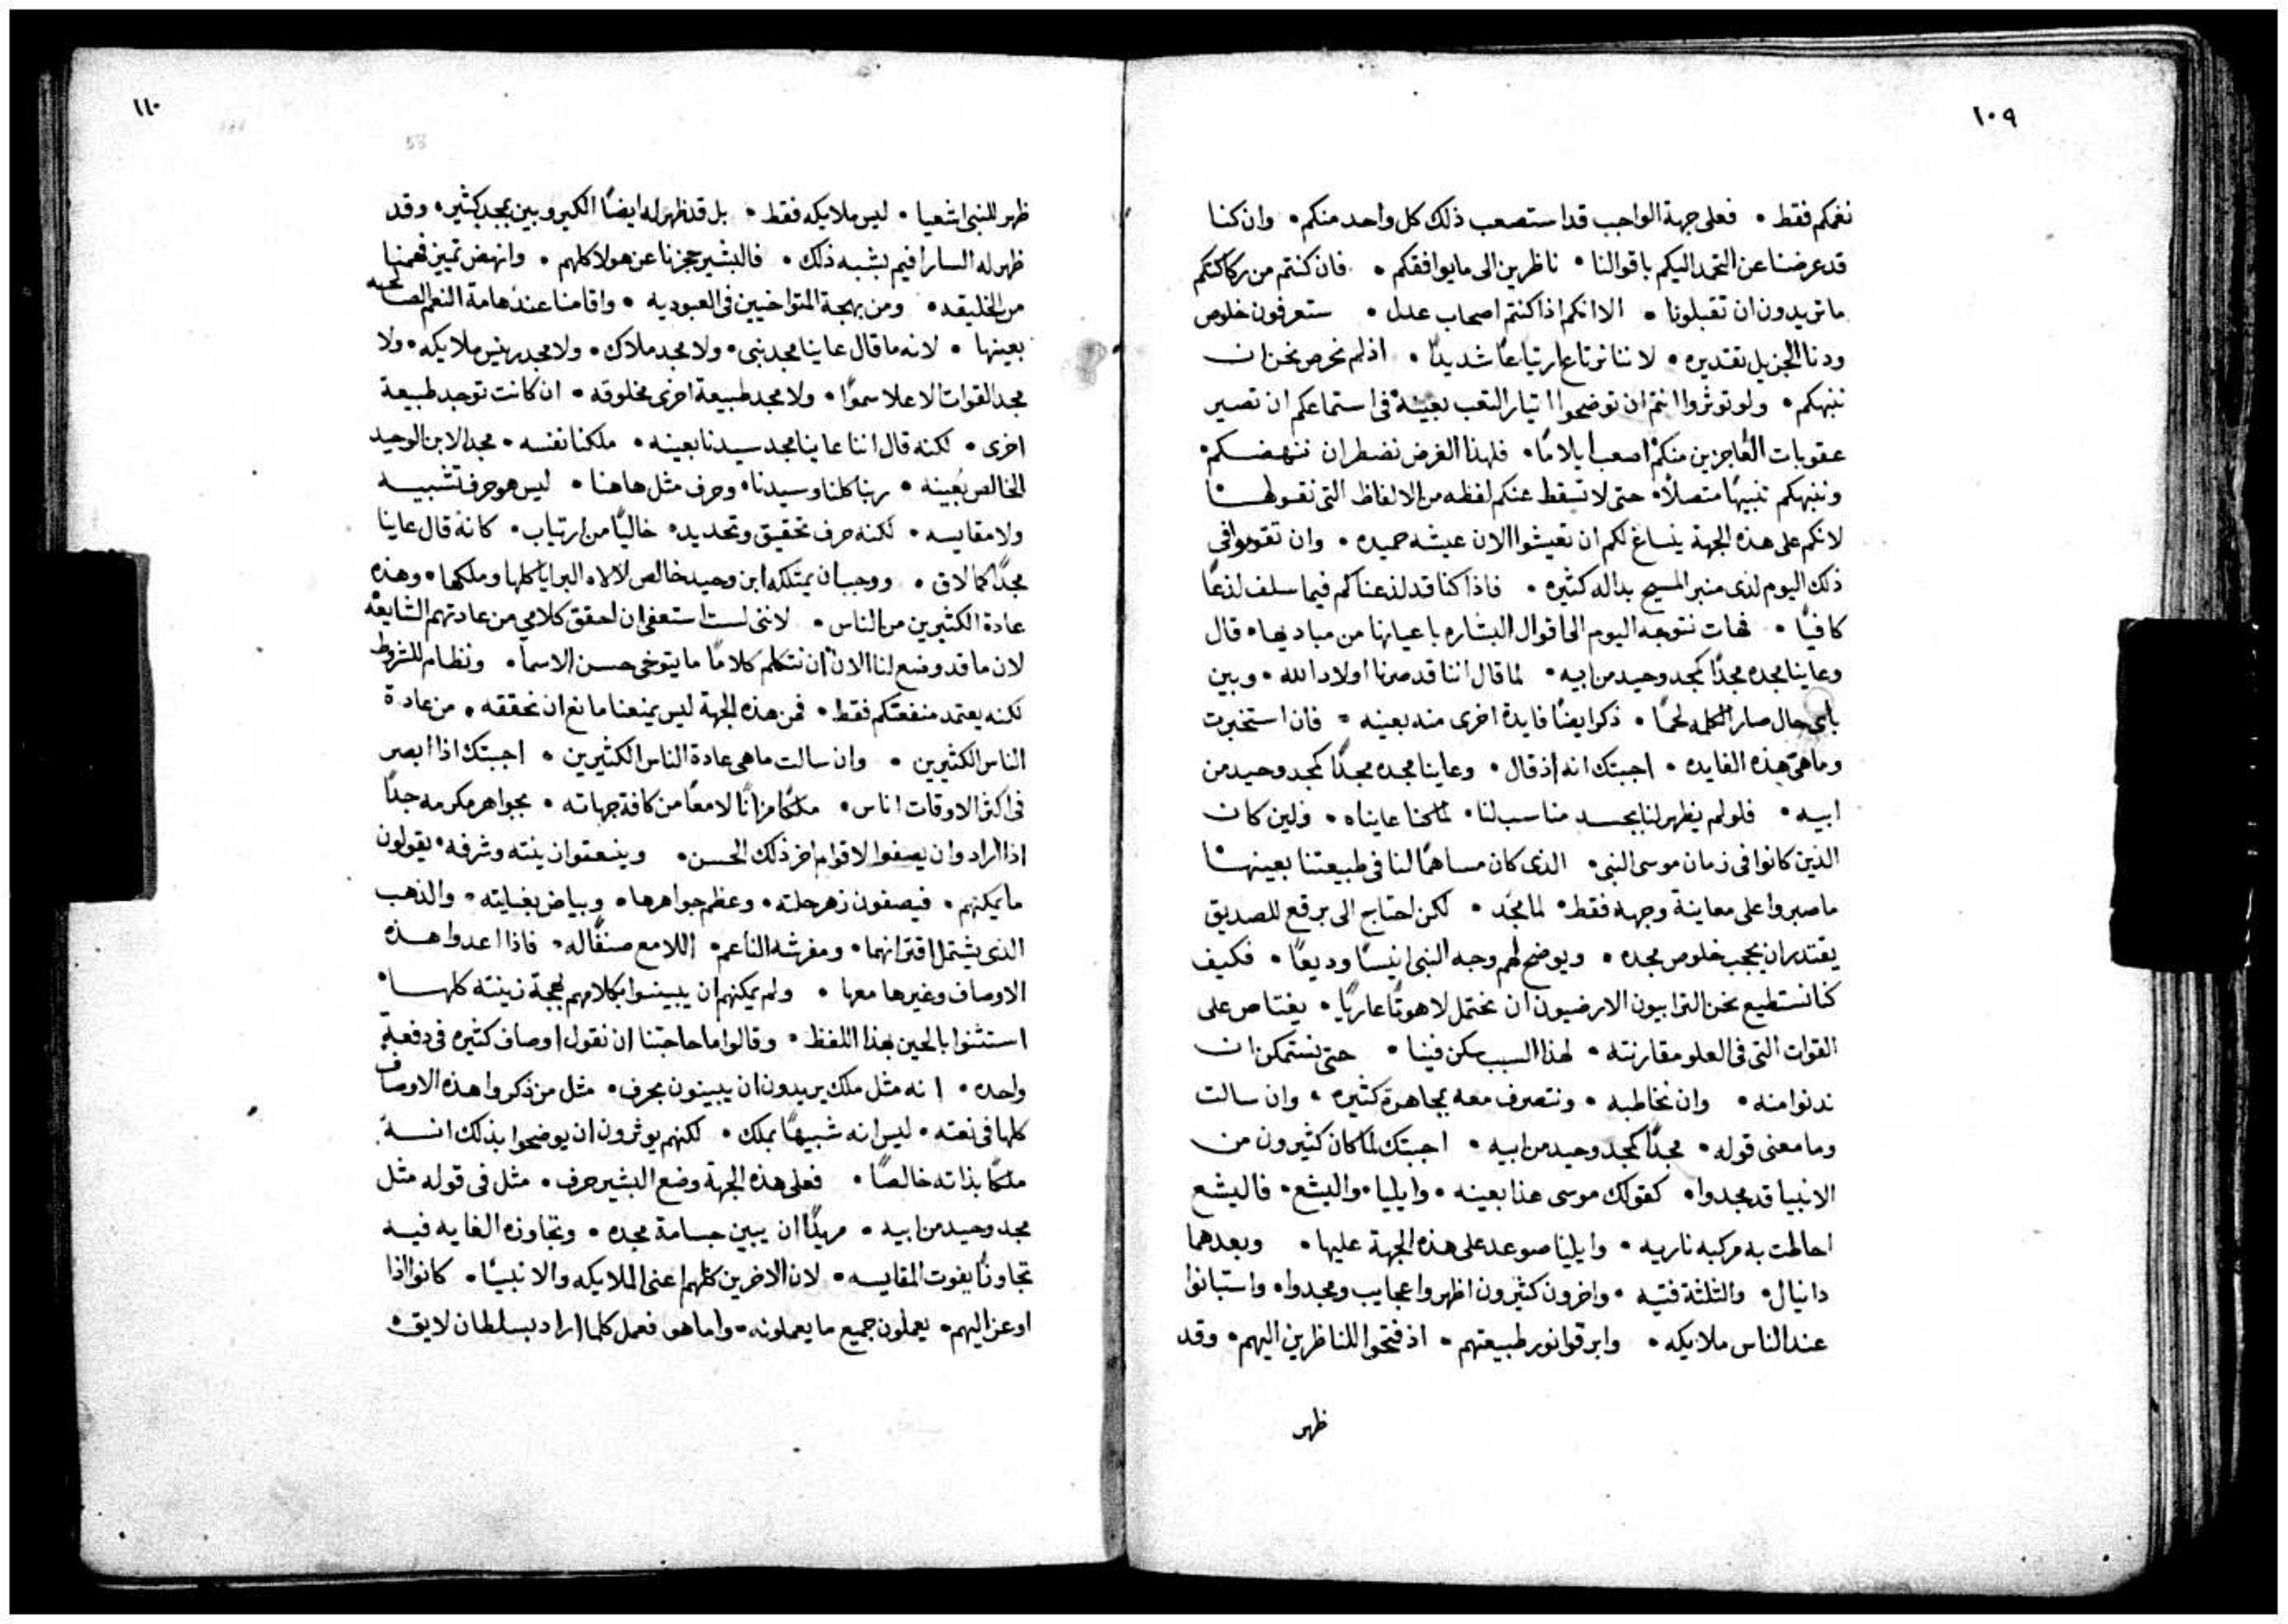 ١٠٩
نغمكم فقط • فعلى جهة الواجب قد استصعب ذلك كل واحد منكم • وان كنا
قد عرضنا عن التحمد اليكم باقوالنا • ناظرين الى ما يوافقكم • فان كنتم من ركاكتكم
ما تريدون ان تقبلونا • الا انكم اذا كنتم اصحاب عدل • ستعرفون خلوص
ودنا الجزيل تقديره • لاننا نرتاع ارتياعًا شديدًا • اذ لم نحرص نحن ان
ننبهكم • ولو توثروا انتم ان توضحوا ايتار التعب بعينه في استماعكم ان تصير
عقوبات العاجزين منكم اصعب ايلامًا • فلهذا الغرض نضطر ان ننهضكم •
وننبهكم تنبيهًا متصلًا • حتى لا تسقط عنكم لفظه من الالفاظ التى نقولها
لانكم على هذه الجهة ينساغ لكم ان تعيشوا الان عيشه حميده • وان تقوموا في
ذلك اليوم لدى منبر المسيح بداله كثيره • فاذا كنا قد لذعناكم فيما سلف لذعًا
كافيًا • فهات نتوجه اليوم الى اقوال البشاره باعيانها من مباديها • قال
وعاينا مجده مجدًا كمجد وحيد من ابيه • لما قال اننا قد صرنا اولاد الله • وبين
باى حال صار الكلمه لحمًا • ذكر ايضًا فايدة اخرى منه بعينه • فان استخبرت
وما هى هذه الفايده • اجبتك انه اذ قال • وعاينا مجده مجدًا كمجد وحيد من
ابيه • فلو لم يظهر لنا بجسد مناسب لنا • لما كنا عايناه • ولين كان
الذين كانوا في زمان موسى النبى • الذى كان مساهمًا لنا في طبيعتنا بعينها
ما صبروا على معاينة وجهه فقط • لما مُجّد • لكن احتاج الى برقع للصديق
يقتدر ان يحجب خلوص مجده • ويوضح لهم وجه النبى انيسًا وديعًا • فكيف
كنا نستطيع نحن الترابيون الارضيون ان نحتمل لاهوتًا عاريًا • يعتاص على
القوات التى في العلو مقارنته • لهذا السبب سكن فينا • حتى نستمكن ان
ندنوا منه • وان نخاطبه • ونتصرف معه بمجاهرة كثيره • وان سالت
وما معنى قوله • مجدًا كمجد وحيد من ابيه • اجبتك لما كان كثيرون من
الانبيا قد مجدوا • كقولك موسى هذا بعينه • وايليا • واليشع • فاليشع
احاطت به مركبه ناريه • وايليا صوعد على هذه الجهة عليها • وبعدهما
دانيال • والثلثة فتيه • واخرون كثيرون اظهروا عجايب ومجدوا • واستبانوا
عند الناس ملايكه • وابرقوا نور طبيعتهم • اذ فتحوا للناظرين اليهم • وقد
ظهر
١١٠
ظهر للنبى اشعيا • ليس ملايكه فقط • بل قد ظهر له ايضًا الكيروبين بمجد كثير • وقد
ظهر له السارافيم يشبه ذلك • فالبشير حجزنا عن هولا كلهم • وانهض تمييز فهمنا
من الخليقه • ومن بهجة المتواخيين في العبوديه • واقامنا عند هامة النعم الصالحه
بعينها • لانه ما قال عاينا مجد نبى • ولا مجد ملاك • ولا مجد رييس ملايكه • ولا
مجد القوات الاعلا سموًا • ولا مجد طبيعة اخرى مخلوقه • ان كانت توجد طبيعة
اخرى • لكنه قال اننا عاينا مجد سيدنا بعينه • ملكنا نفسه • مجد الابن الوحيد
الخالص بعينه • ربنا كلنا وسيدنا • وحرف مثل هاهنا • ليس هو حرف تشبيه
ولا مقايسه • لكنه حرف تحقيق وتحديد • خاليًا من ارتياب • كانه قال عاينا
مجدًا كما لاق • ووجب ان يمتلكه ابن وحيد خالص لالاه البرايا كلها وملكها • وهذه
عادة الكثيرين من الناس • لاننى لست استعفى ان احقق كلامي من عادتهم الشايعه
لان ما قد وضع لنا الان ان نتكلم كلامًا ما يتوخى حسن الاسما • ونظام للشروط
لكنه يعتمد منفعتكم فقط • فمن هذه الجهة ليس يمنعنا مانع ان نحققه • من عادة
الناس الكثيرين • وان سالت ما هى عادة الناس الكثيرين • اجبتك اذا ابصر
في اكثر الاوقات اناس • ملكًا مزانًا لامعًا من كافة جهاته • بجواهر مكرمه جدًا
اذا ارادوا ان يصفوا لاقوام اخر ذلك الحسن • وينعتوا زينته وشرفه • يقولون
ما يمكنهم • فيصفون زهر حلته • وعظم جواهرها • وبياض بغلاته • والذهب
الذى يشتمل اقترانهما • ومفرشه الناعم • اللامع • فاذا اعدوا هذه
الاوصاف وغيرها معها • ولم يمكنهم ان يبينوا بكلامهم بهجة زينته كلها •
استثنوا بالحين بهذا اللفظ • وقالوا ما حاجتنا ان نقول اوصاف كثيره في دفعة
واحده • انه مثل ملك يريدون ان يبينون بحرف • مثل من ذكروا هذه الاوصاف
كلها في نعته • ليس انه شبيهًا بملك • لكنهم يوثرون ان يوضحوا بذلك انه
ملكًا بذاته خالصًا • فعلى هذه الجهة وضع البشير حرف • مثل في قوله مثل
مجد وحيد من ابيه • مريدًا ان يبين جسامة مجده • وتجاوزه الغايه فيه
تجاوزًا يفوت المقايسه • لان الاخرين كلهم اعنى الملايكه والانبيا • كانوا اذا
اوعز اليهم • يعملون جميع ما يعملونه • واما هو فعمل كلما اراد بسلطان لايق •